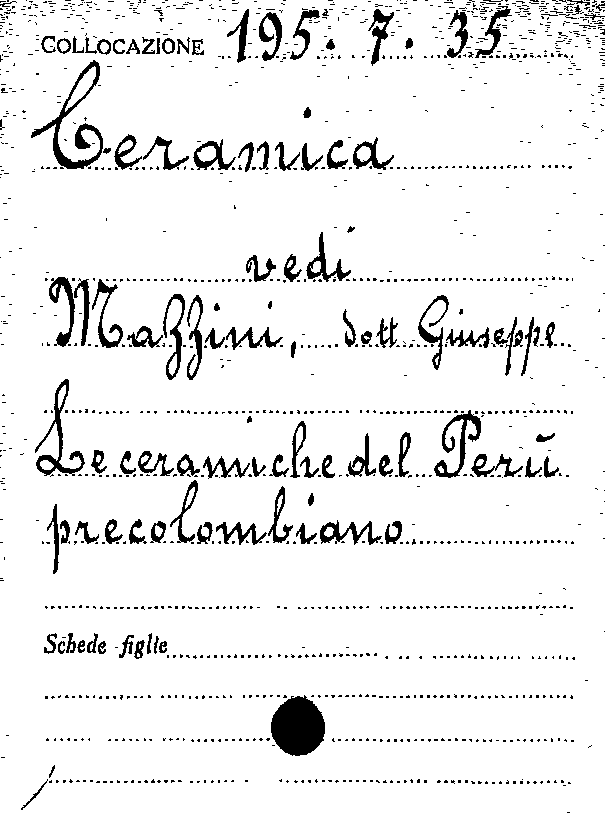 COLLOCAZIONE 195. 7. 35
Ceramica
vedi
Mazzini, dott Giuseppe
Le ceramiche del Perū
precolombiano
Schede figlie